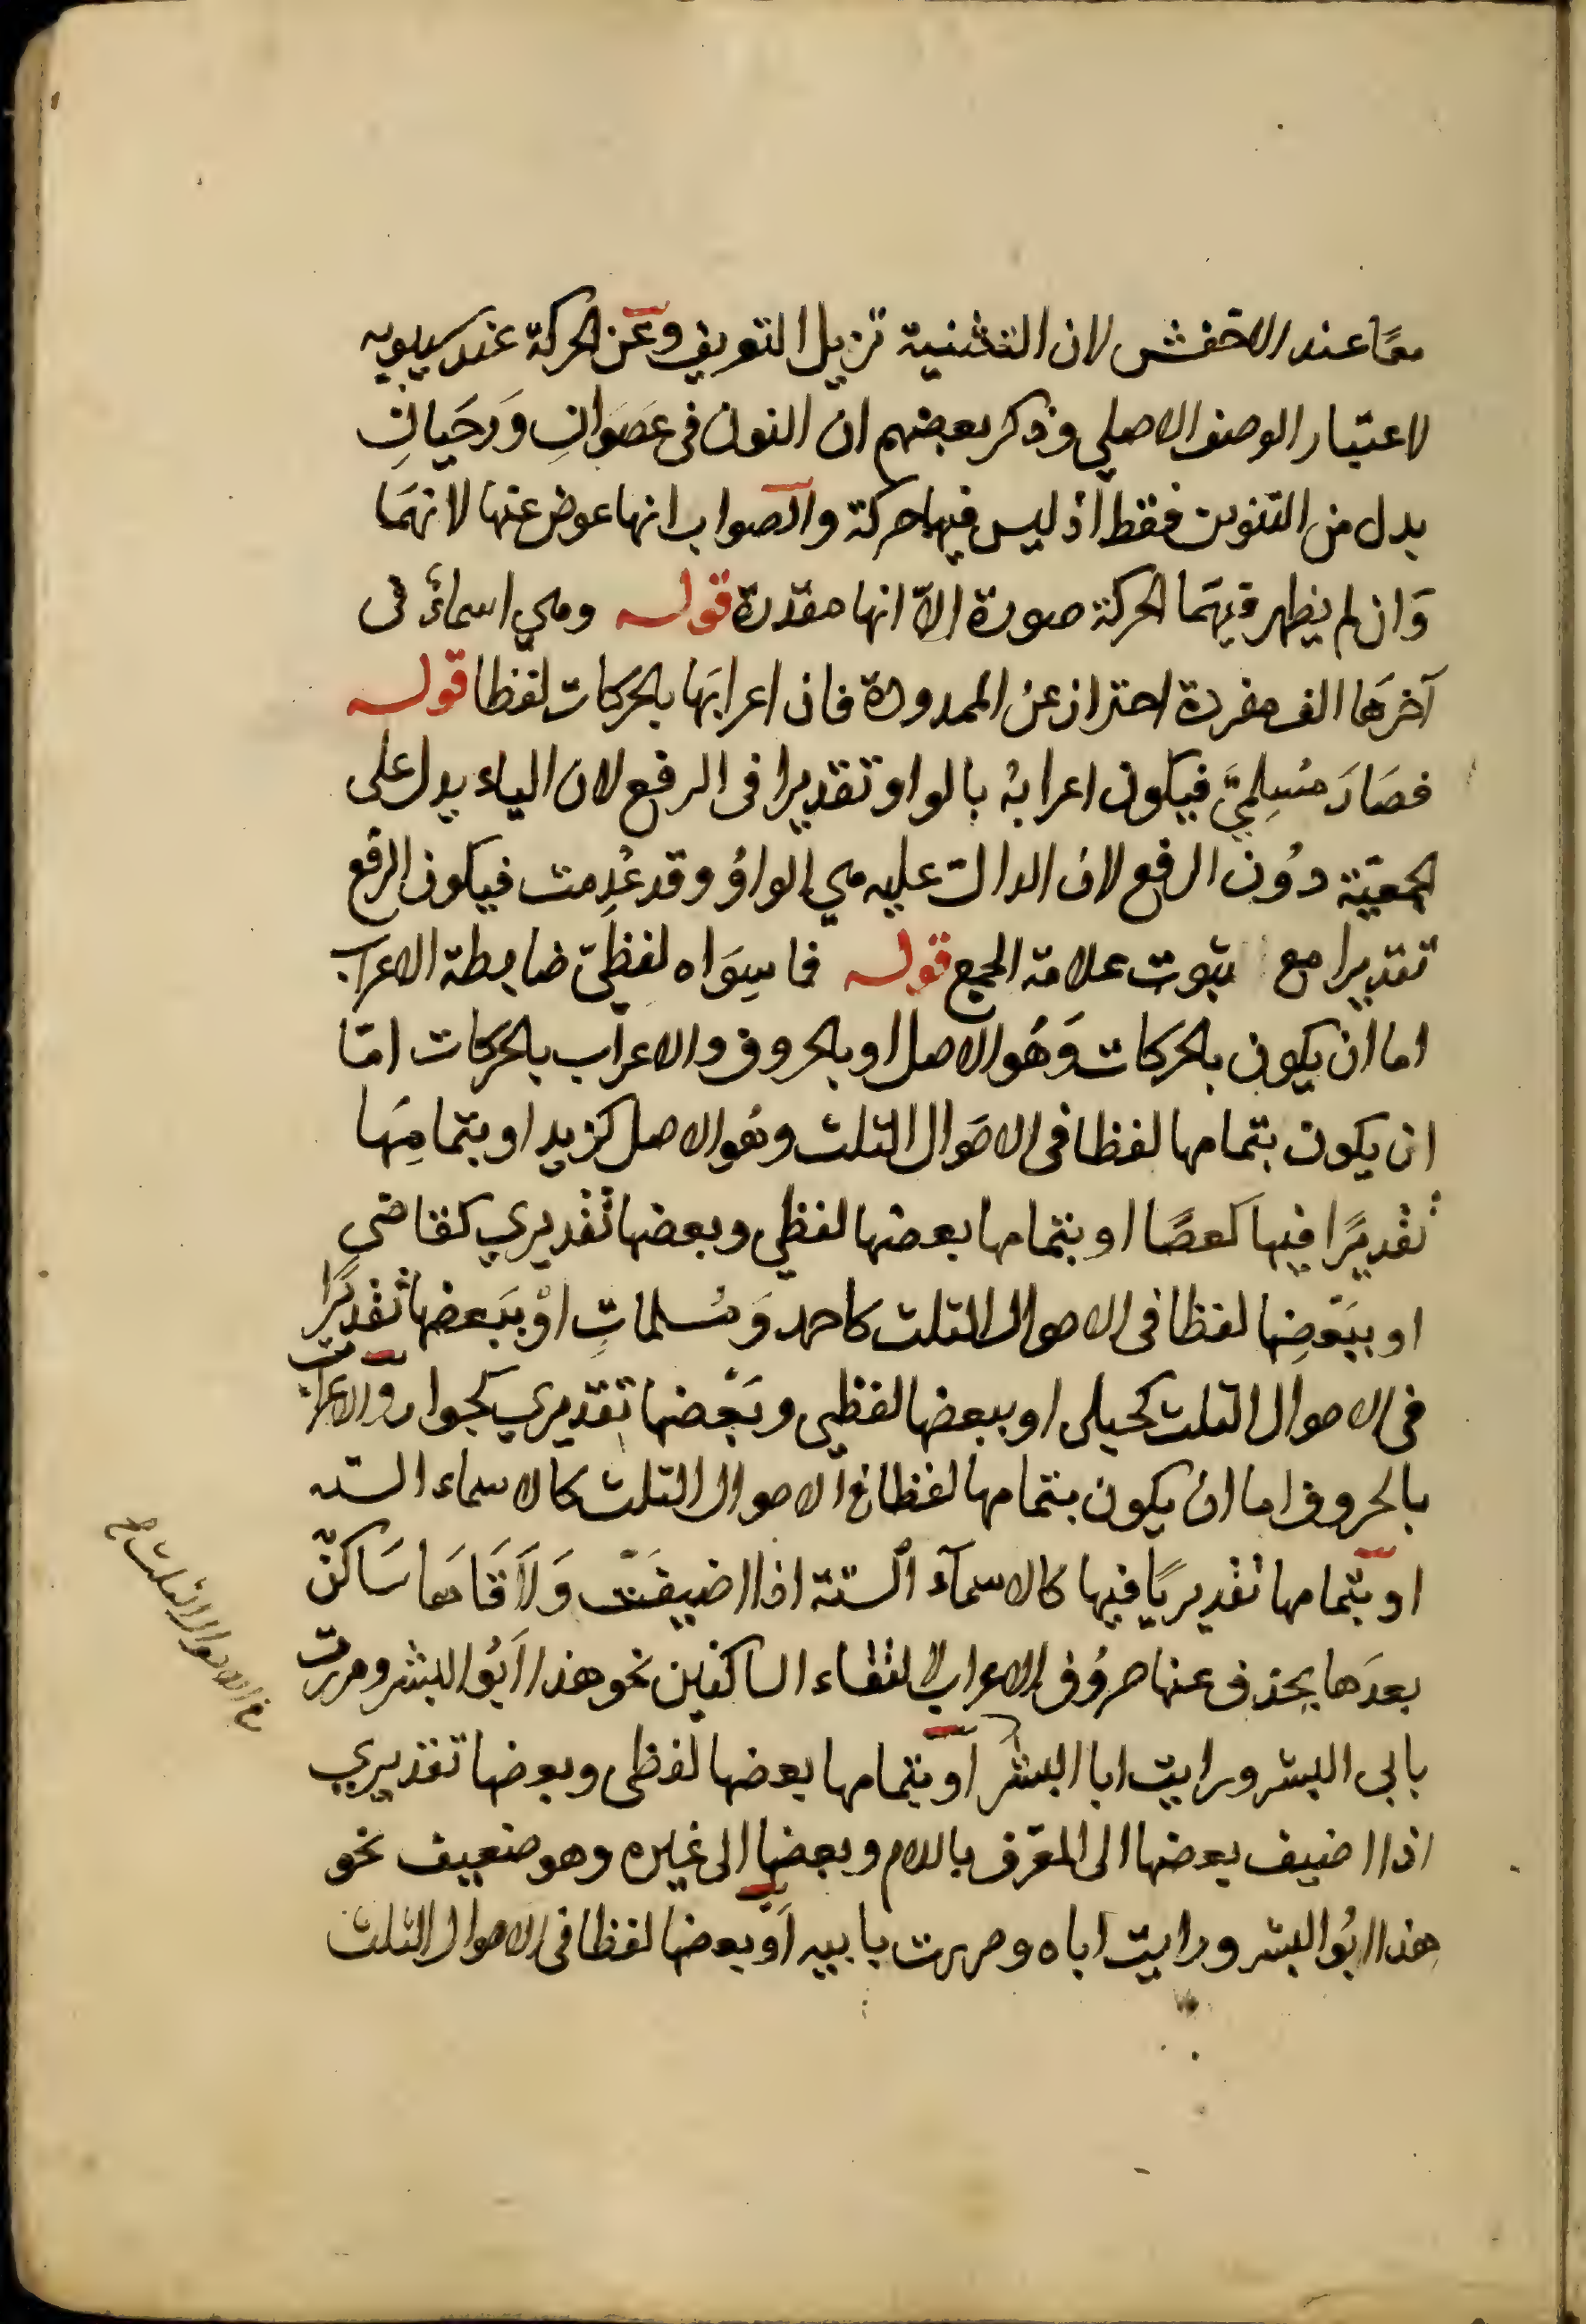 معًا عند الاخفش لان التثنية تزيل التعريف وعن الحركة عند سيبويه
لاعتبار الوصف الاصلي وذكر بعضهم ان النون فى عَصَوَانِ وَرَحَيانِ
بدل من التنوين فقط اذ ليس فيها حركة والصواب انها عوض عنها لانهمَا
وَان لم يظهر فيهمَا الحركة صورة الّا انها مقدرة قوله وهي اسماءٌ فى
آخرهَا الف مفردة احتراز عن الممدودة فان اعرابَها بالحركات لفظا قوله
فصَارَ مُسْلِمِيَّ فيكون اعرابهُ بالواو تقديرا فى الرفع لان الياء يدل على
الجمعيّة دوُن الرفع لان الدالّ عليه هي الواوُ وقد عُدِمت فيكون الرفع
تقديرا مع ثبوت علامة الجمع قوله فما سِوَاه لفظيّ ضابطة الاعراب
اما ان يكون بالحركات وَهُو الاصل او بالحروف والاعراب بالحركات امّا
ان يكون بتمامها لفظا فى الاحوَال الثلث وهُو الاصل كزيد او بتمامِهَا
تقديرًا فيها كعصًا او بتمامها بعضها لفظي وبعضها تقديري كقاضي
او ببَعْضِها لفظا فى الاحوال الثلث كاحمد وَمُسلماتٍ اوْ ببَعضها تقديرًا
فى الاحوال الثلث كحبلى او ببعضها لفظي وبَعْضها تقديري كجوار والاعراب
بالحروف اما ان يكون بتمامها لفظا فى الاحوال الثلث كالاسماء الستة
او بتمامها تقديريًا فيها كالاسمآء الستة اذا اضيفَتْ وَلَاقَاهَا سَاكنٌ
بعدَها يحذف عنها حروُف الاعراب لالتقاء الساكنين نحو هذا اَبُو البشر ومررت
بابى البشر ورايت ابا البشر اَو بتمامها بعضها لفظى وبعضها تقديري
اذا اضيف بعضها الى المعّرف باللام وبعضها الى غيره وهو ضعيف نحو
هذا ابُو البشر ورايت اباه ومررت بابيه اَوْ ببعضها لفظا فى الاحوال الثلث
فى الاحوال الثلث